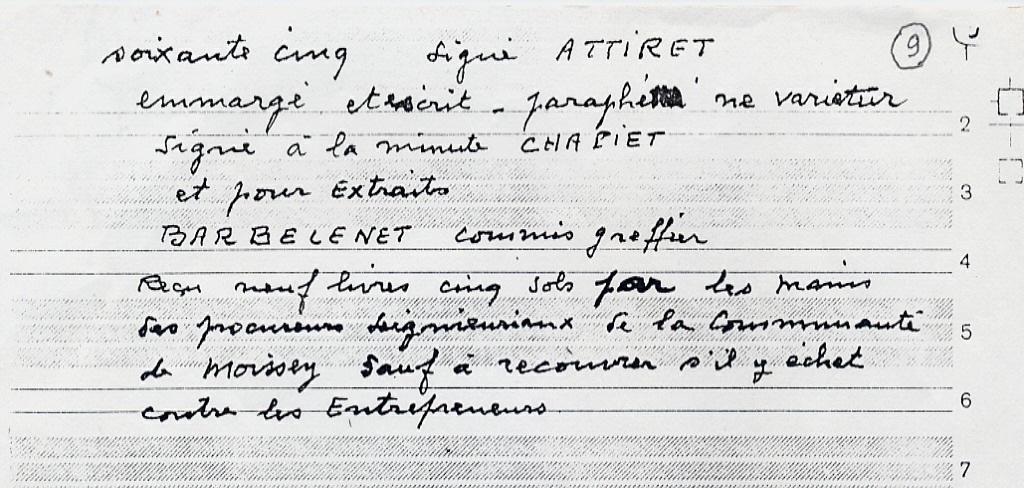 soixante cinq signé ATTIRET 9
emmargé et écrit - paraphé ne varietur
signé à la minute CHAPIET
2
et pour Extraits
3
BARBELENET commis greffier
4
Reçu neuf livres cinq sols par les mains
des procureurs seigneuriaux de la Communauté
5
de Moissey sauf à recouvrer s'il y échet
contre les Entrepreneurs
6
7